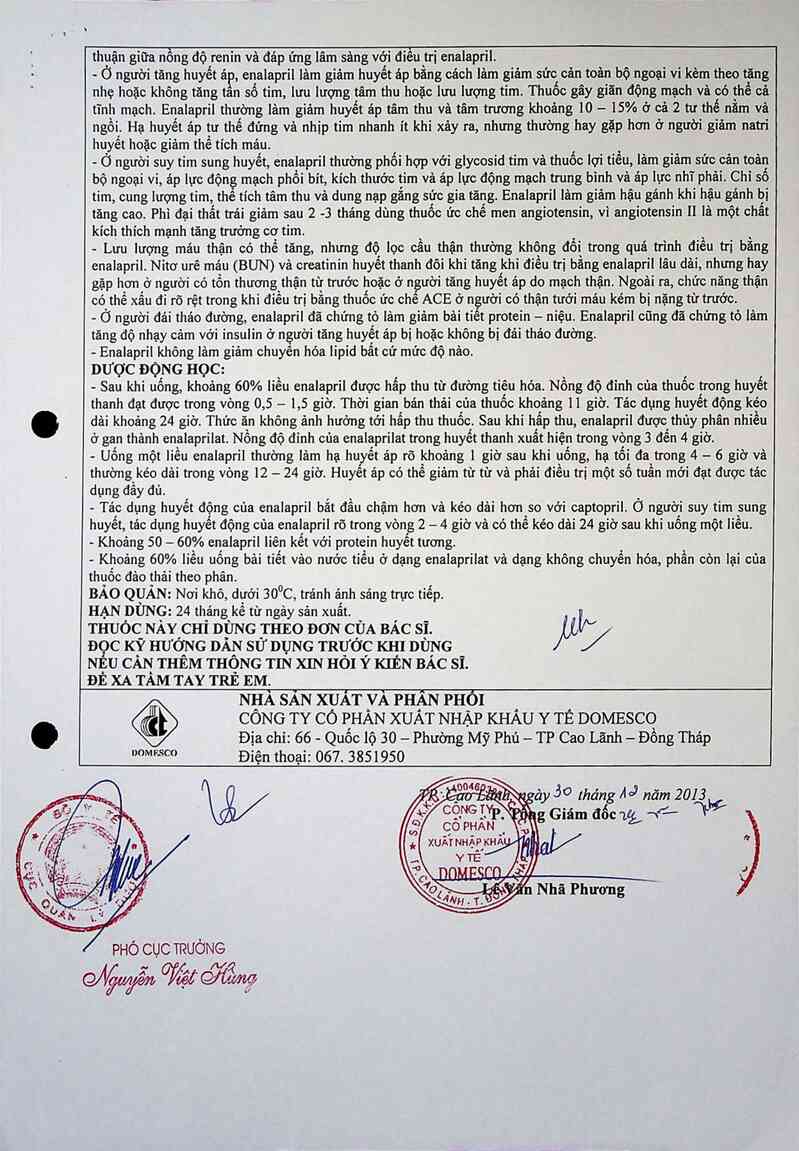 thuận giữa nồng độ renin và đáp ứng lâm sàng với điều trị enalapril.
- Ở người tăng huyết áp, enalapril làm giảm huyết áp bằng cách làm giảm sức cản toàn bộ ngoại vi kèm theo tăng
nhẹ hoặc không tăng tần số tim, lưu lượng tâm thu hoặc lưu lượng tim. Thuốc gây giãn động mạch và có thể cả
tĩnh mạch. Enalapril thường làm giảm huyết áp tâm thu và tâm trương khoảng 10 – 15% ở cả 2 tư thế nằm và
ngồi. Hạ huyết áp tư thế đứng và nhịp tim nhanh ít khi xảy ra, nhưng thường hay gặp hơn ở người giảm natri
huyết hoặc giảm thể tích máu.
- Ở người suy tim sung huyết, enalapril thường phối hợp với glycosid tim và thuốc lợi tiểu, làm giảm sức cản toàn
bộ ngoại vi, áp lực động mạch phổi bít, kích thước tim và áp lực động mạch trung bình và áp lực nhĩ phải. Chỉ số
tim, cung lượng tim, thể tích tâm thu và dung nạp gắng sức gia tăng. Enalapril làm giảm hậu gánh khi hậu gánh bị
tăng cao. Phì đại thất trái giảm sau 2 -3 tháng dùng thuốc ức chế men angiotensin, vì angiotensin II là một chất
kích thích mạnh tăng trưởng cơ tim.
- Lưu lượng máu thận có thể tăng, nhưng độ lọc cầu thận thường không đổi trong quá trình điều trị bằng
enalapril. Nitơ urê máu (BUN) và creatinin huyết thanh đôi khi tăng khi điều trị bằng enalapril lâu dài, nhưng hay
gặp hơn ở người có tổn thương thận từ trước hoặc ở người tăng huyết áp do mạch thận. Ngoài ra, chức năng thận
có thể xấu đi rõ rệt trong khi điều trị bằng thuốc ức chế ACE ở người có thận tưới máu kém bị nặng từ trước.
- Ở người đái tháo đường, enalapril đã chứng tỏ làm giảm bài tiết protein – niệu. Enalapril cũng đã chứng tỏ làm
tăng độ nhạy cảm với insulin ở người tăng huyết áp bị hoặc không bị đái tháo đường.
- Enalapril không làm giảm chuyển hóa lipid bất cứ mức độ nào.
DƯỢC ĐỘNG HỌC:
- Sau khi uống, khoảng 60% liều enalapril được hấp thu từ đường tiêu hóa. Nồng độ đỉnh của thuốc trong huyết
thanh đạt được trong vòng 0,5 – 1,5 giờ. Thời gian bán thải của thuốc khoảng 11 giờ. Tác dụng huyết động kéo
dài khoảng 24 giờ. Thức ăn không ảnh hưởng tới hấp thu thuốc. Sau khi hấp thu, enalapril được thủy phân nhiều
ở gan thành enalaprilat. Nồng độ đỉnh của enalaprilat trong huyết thanh xuất hiện trong vòng 3 đến 4 giờ.
- Uống một liều enalapril thường làm hạ huyết áp rõ khoảng 1 giờ sau khi uống, hạ tối đa trong 4 – 6 giờ và
thường kéo dài trong vòng 12 – 24 giờ. Huyết áp có thể giảm từ từ và phải điều trị một số tuần mới đạt được tác
dụng đầy đủ.
- Tác dụng huyết động của enalapril bắt đầu chậm hơn và kéo dài hơn so với captopril. Ở người suy tim sung
huyết, tác dụng huyết động của enalapril rõ trong vòng 2 – 4 giờ và có thể kéo dài 24 giờ sau khi uống một liều.
- Khoảng 50 – 60% enalapril liên kết với protein huyết tương.
- Khoảng 60% liều uống bài tiết vào nước tiểu ở dạng enalaprilat và dạng không chuyển hóa, phần còn lại của
thuốc đào thải theo phân.
BẢO QUẢN: Nơi khô, dưới 30⁰C, tránh ánh sáng trực tiếp.
HẠN DÙNG: 24 tháng kể từ ngày sản xuất.
THUỐC NÀY CHỈ DÙNG THEO ĐƠN CỦA BÁC SĨ.
ĐỌC KỸ HƯỚNG DẪN SỬ DỤNG TRƯỚC KHI DÙNG
NẾU CẦN THÊM THÔNG TIN XIN HỎI Ý KIẾN BÁC SĨ.
ĐỂ XA TẦM TAY TRẺ EM.
NHÀ SẢN XUẤT VÀ PHÂN PHỐI
CÔNG TY CỔ PHẦN XUẤT NHẬP KHẨU Y TẾ DOMESCO
Địa chỉ: 66 - Quốc lộ 30 – Phường Mỹ Phú – TP Cao Lãnh – Đồng Tháp
Điện thoại: 067. 3851950
DOMESCO
TP. Cao Lãnh, ngày 30 tháng 12 năm 2013
P. Tổng Giám đốc
CÔNG TY
CỔ PHẦN
XUẤT NHẬP KHẨU
Y TẾ
DOMESCO
TP. CAO LÃNH - T. ĐỒNG THÁP
Lê Văn Nhã Phương
BỘ Y TẾ
CỤC QUẢN LÝ DƯỢC
PHÓ CỤC TRƯỞNG
Nguyễn Việt Hùng